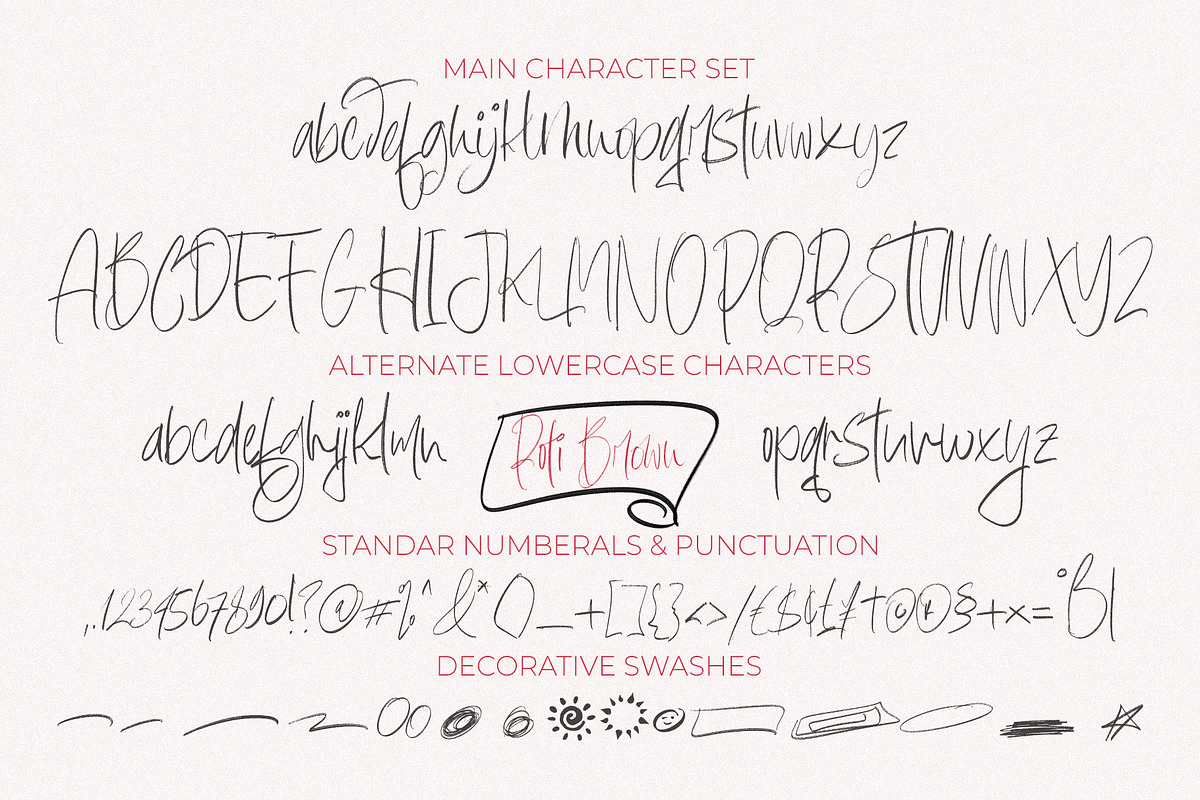 MAIN CHARACTER SET
abcdefghijklmnopqrstuvwxyz
ABCDEFGHIJKLMNOPQRSTUVWXYZ
ALTERNATE LOWERCASE CHARACTERS
abcdefghijklmn
Rofi Brown
opqrstuvwxyz
STANDAR NUMBERALS & PUNCTUATION
,.1234567890!?@#%^&*()_+[]{}<>/€$¢£¥†©®§+×=°ß|
DECORATIVE SWASHES